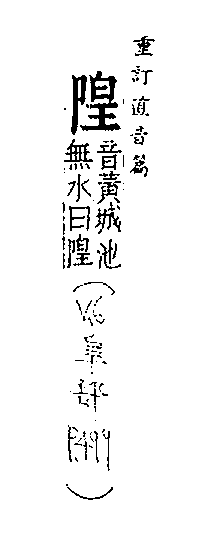 重訂直音篇
隍
音黃城池
無水曰隍
(V.6
阜部
P.499)